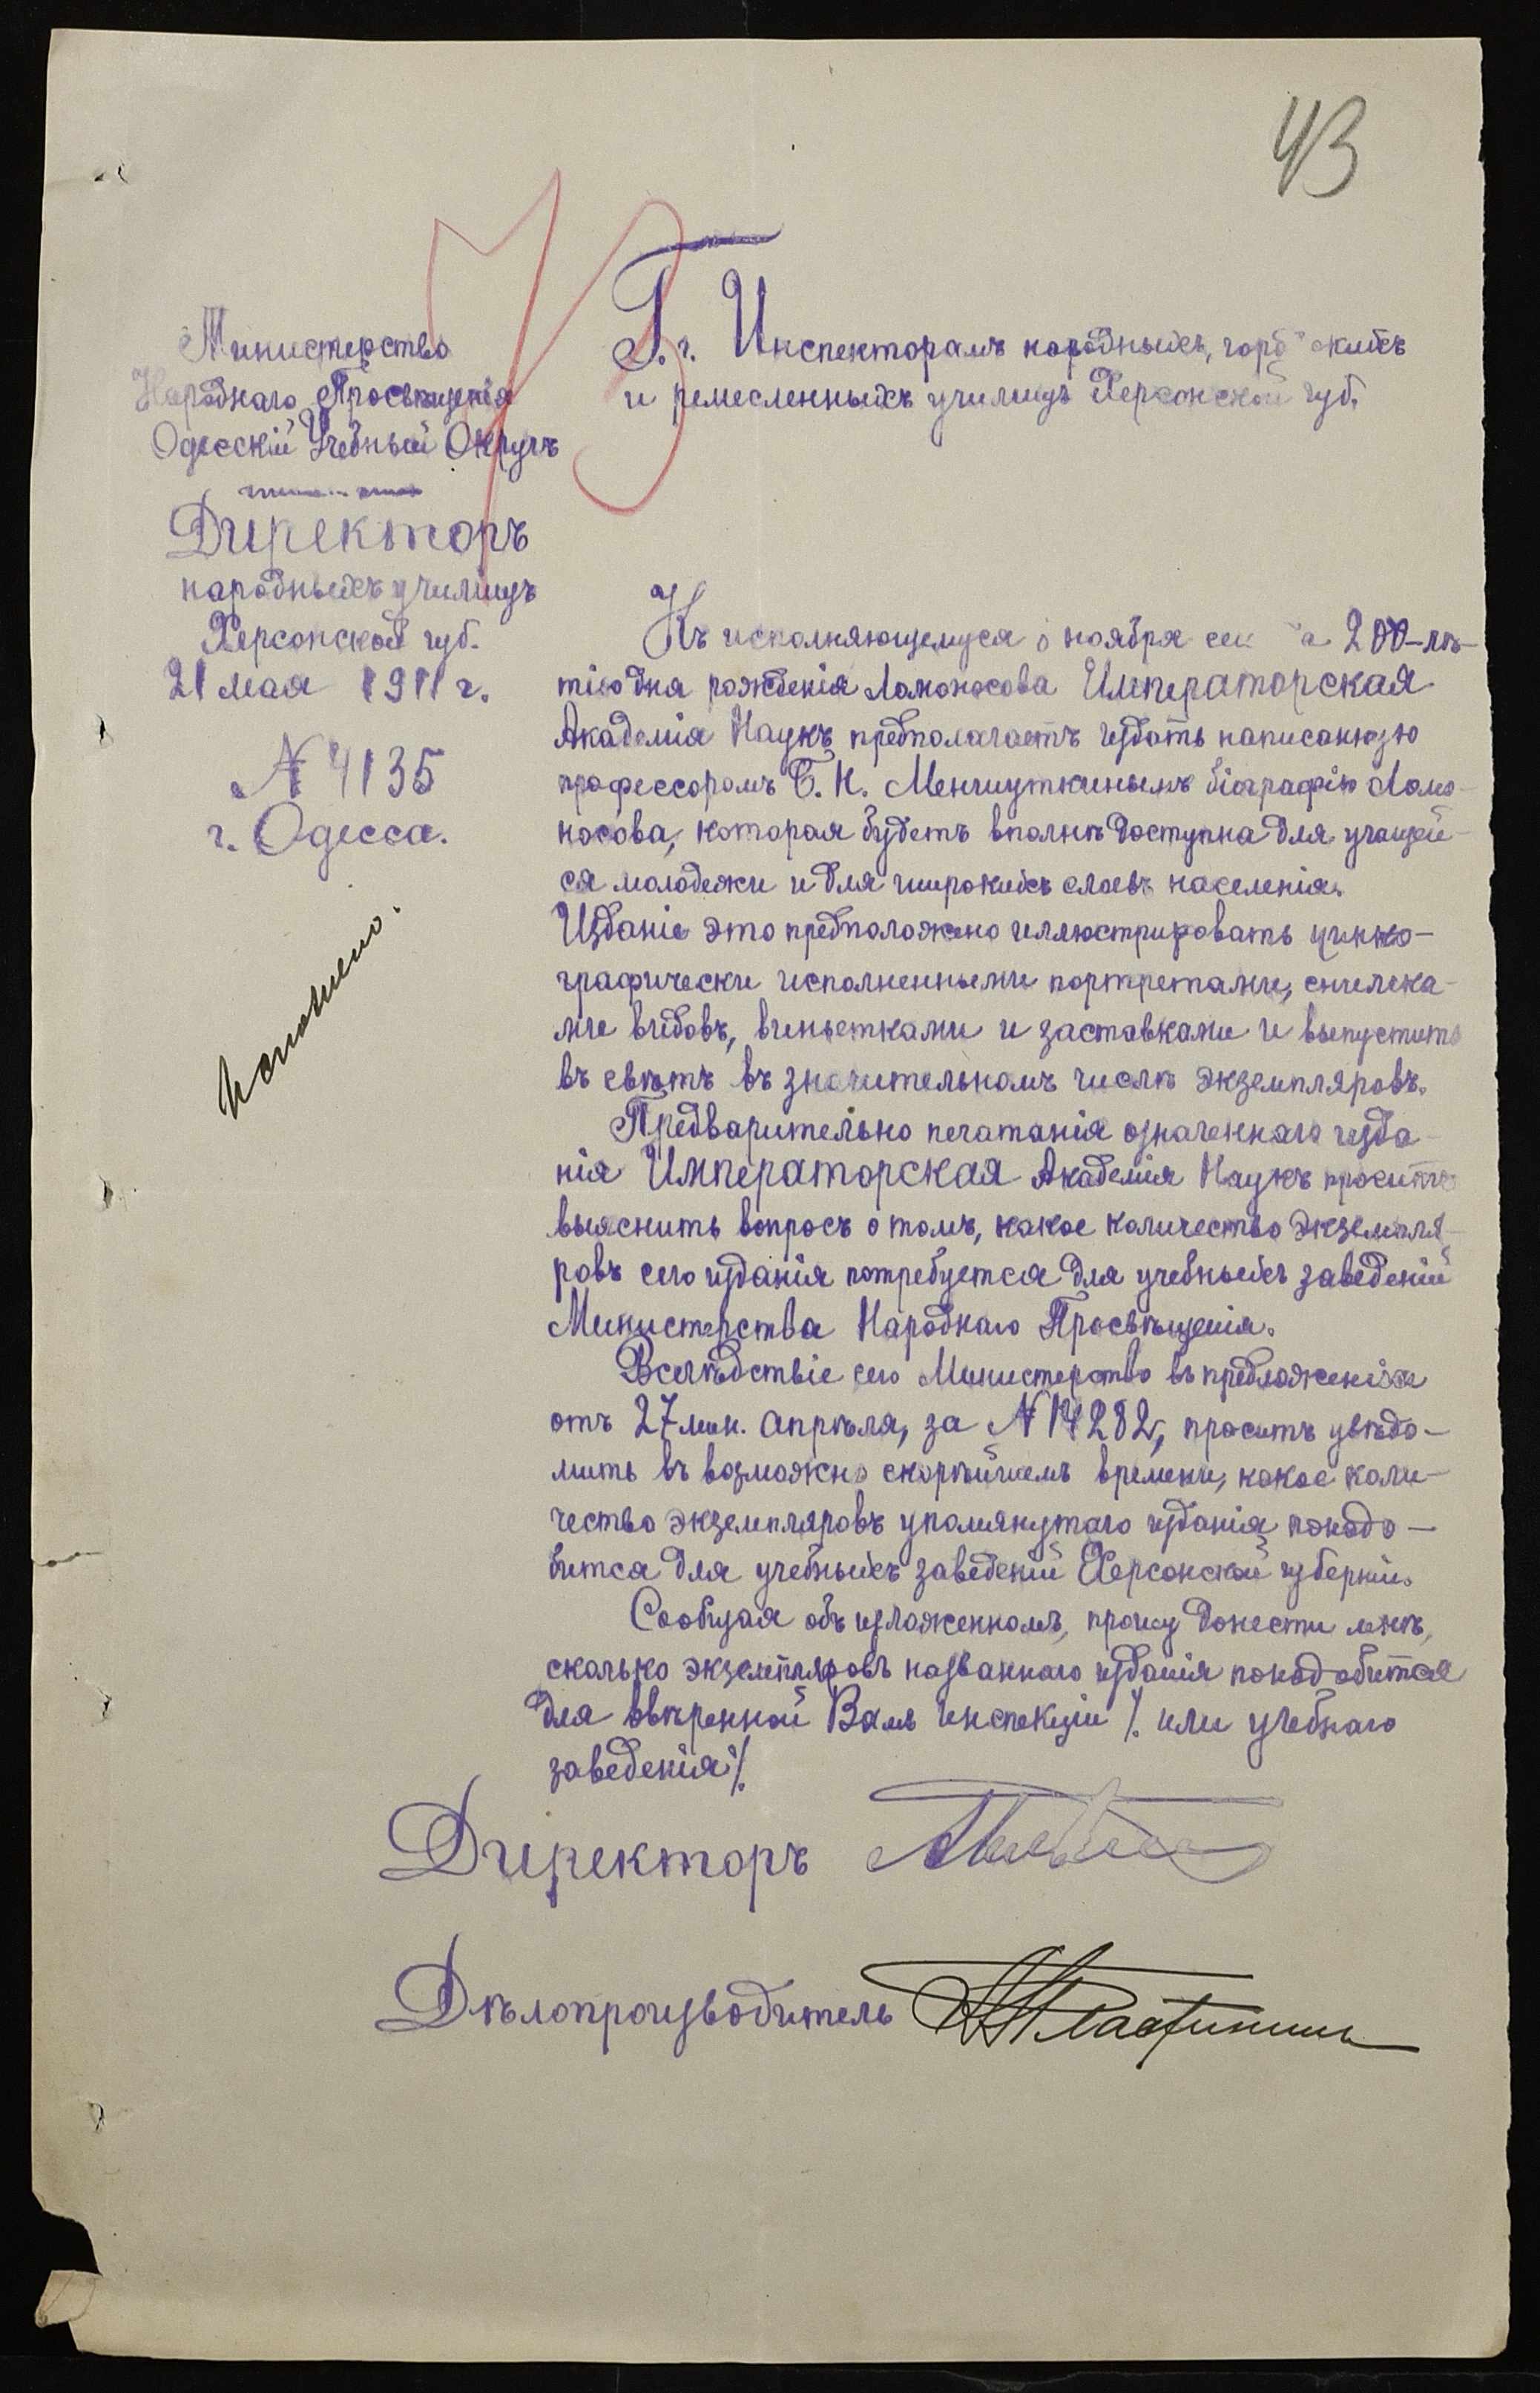 43
Министерство
Народнаго Просвѣщенія
Одесскій Учебный Округъ
Директоръ
народныхъ училищъ
Херсонской губ.
21 мая 1911 г.
№ 4135
г. Одесса.
Исполнено.
Г.г. Инспекторамъ народныхъ, городскихъ
и ремесленныхъ училищъ Херсонской губ.
Къ исполняющемуся ноября 200-лѣ-
тію дня рожденія Ломоносова Императорская
Академія Наукъ предполагаетъ издать написанную
профессоромъ Б. Н. Меншуткинымъ біографію Ломо-
носова, которая будетъ вполнѣ доступна для учащей-
ся молодежи и для широкихъ слоевъ населенія.
Изданіе это предположено иллюстрировать цинко-
графически исполненными портретами, снимка-
ми видовъ, виньетками и заставками и выпустить
въ свѣтъ въ значительномъ числѣ экземпляровъ.
Предварительно печатанія означеннаго изда-
нія Императорская Академія Наукъ проситъ
выяснить вопросъ о томъ, какое количество экземпля-
ровъ сего изданія потребуется для учебныхъ заведеній
Министерства Народнаго Просвѣщенія.
Вслѣдствіе сего Министерство въ предложеніи
отъ 27 мин. апрѣля, за № 14282, проситъ увѣдо-
мить въ возможно скорѣйшемъ времени, какое коли-
чество экземпляровъ упомянутаго изданія понадо-
бится для учебныхъ заведеній Херсонской губерніи.
Сообщая объ изложенномъ, прошу донести мнѣ,
сколько экземпляровъ названнаго изданія понадобится
для ввѣренной Вамъ Инспекціи /. или учебнаго
заведенія /.
Директоръ
Дѣлопроизводитель